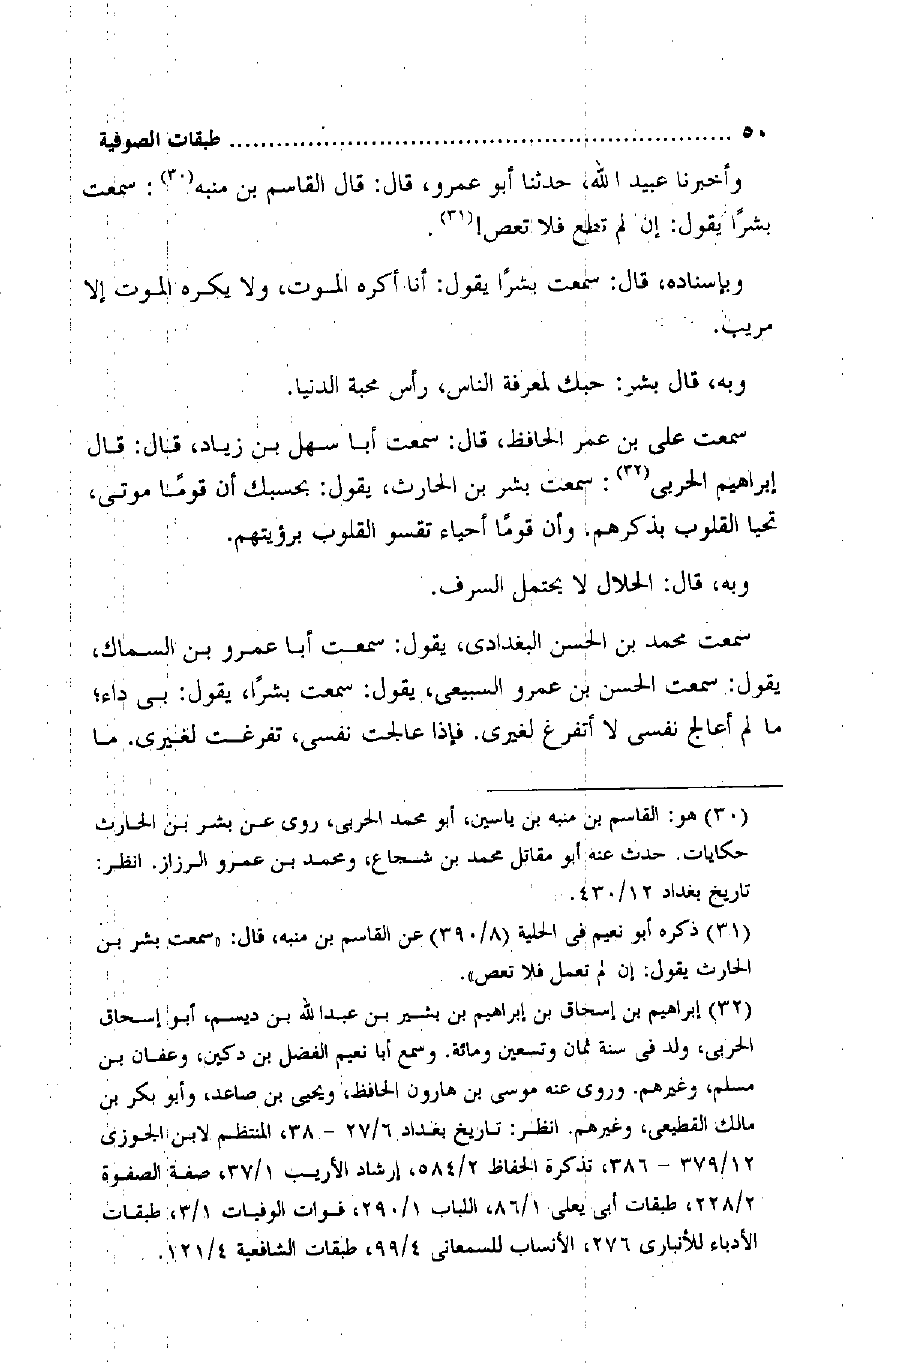 ٥٠ ................................................................ طبقات الصوفية
وأخبرنا عبيد الله، حدثنا أبو عمرو، قال: قال القاسم بن منبه(٣٠) : سمعت
بشرًا يقول: إن لم تطع فلا تعص!(٣١).
وبإسناده، قال: سمعت بشرًا يقول: أنا أكره الموت، ولا يكره الموت إلا
مريب.
وبه، قال بشر: حبك لمعرفة الناس، رأس محبة الدنيا.
سمعت على بن عمر الحافظ، قال: سمعت أبا سهل بن زياد، قال: قال
إبراهيم الحربى(٣٢) : سمعت بشر بن الحارث، يقول: بحسبك أن قومًا موتى،
تحيا القلوب بذكرهم. وأن قومًا أحياء تقسو القلوب برؤيتهم.
وبه، قال: الحلال لا يحتمل السرف.
سمعت محمد بن الحسن البغدادى، يقول: سمعت أبا عمرو بن السماك،
يقول: سمعت الحسن بن عمرو السبيعى، يقول: سمعت بشرًا، يقول: بى داء؛
ما لم أعالج نفسى لا أتفرغ لغيرى. فإذا عالجت نفسى، تفرغت لغيرى. ما
(٣٠) هو: القاسم بن منبه بن ياسين، أبو محمد الحربى، روى عن بشر بن الحارث
حكايات. حدث عنه أبو مقاتل محمد بن شجاع، ومحمد بن عمرو الرزاز. انظر:
تاريخ بغداد ٤٣٠/١٢.
(٣١) ذكره أبو نعيم فى الحلية (٣٩٠/٨) عن القاسم بن منبه، قال: «سمعت بشر بن
الحارث يقول: إن لم تعمل فلا تعص».
(٣٢) إبراهيم بن إسحاق بن إبراهيم بن بشير بن عبدالله بن ديسم، أبو إسحاق
الحربى، ولد فى سنة ثمان وتسعين ومائة. وسمع أبا نعيم الفضل بن دكين، وعفان بن
مسلم، وغيرهم. وروى عنه موسى بن هارون الحافظ، ويحيى بن صاعد، وأبو بكر بن
مالك القطيعى، وغيرهم. انظر: تاريخ بغداد ٢٧/٦ - ٣٨، المنتظم لابن الجوزى
٣٧٩/١٢ - ٣٨٦، تذكرة الحفاظ ٥٨٤/٢، إرشاد الأريب ٣٧/١، صفة الصفوة
٢٢٨/٢، طبقات أبى يعلى ٨٦/١، اللباب ٢٩٠/١، فوات الوفيات ٣/١، طبقات
الأدباء للأنبارى ٢٧٦، الأنساب للسمعانى ٩٩/٤، طبقات الشافعية ١٢١/٤.